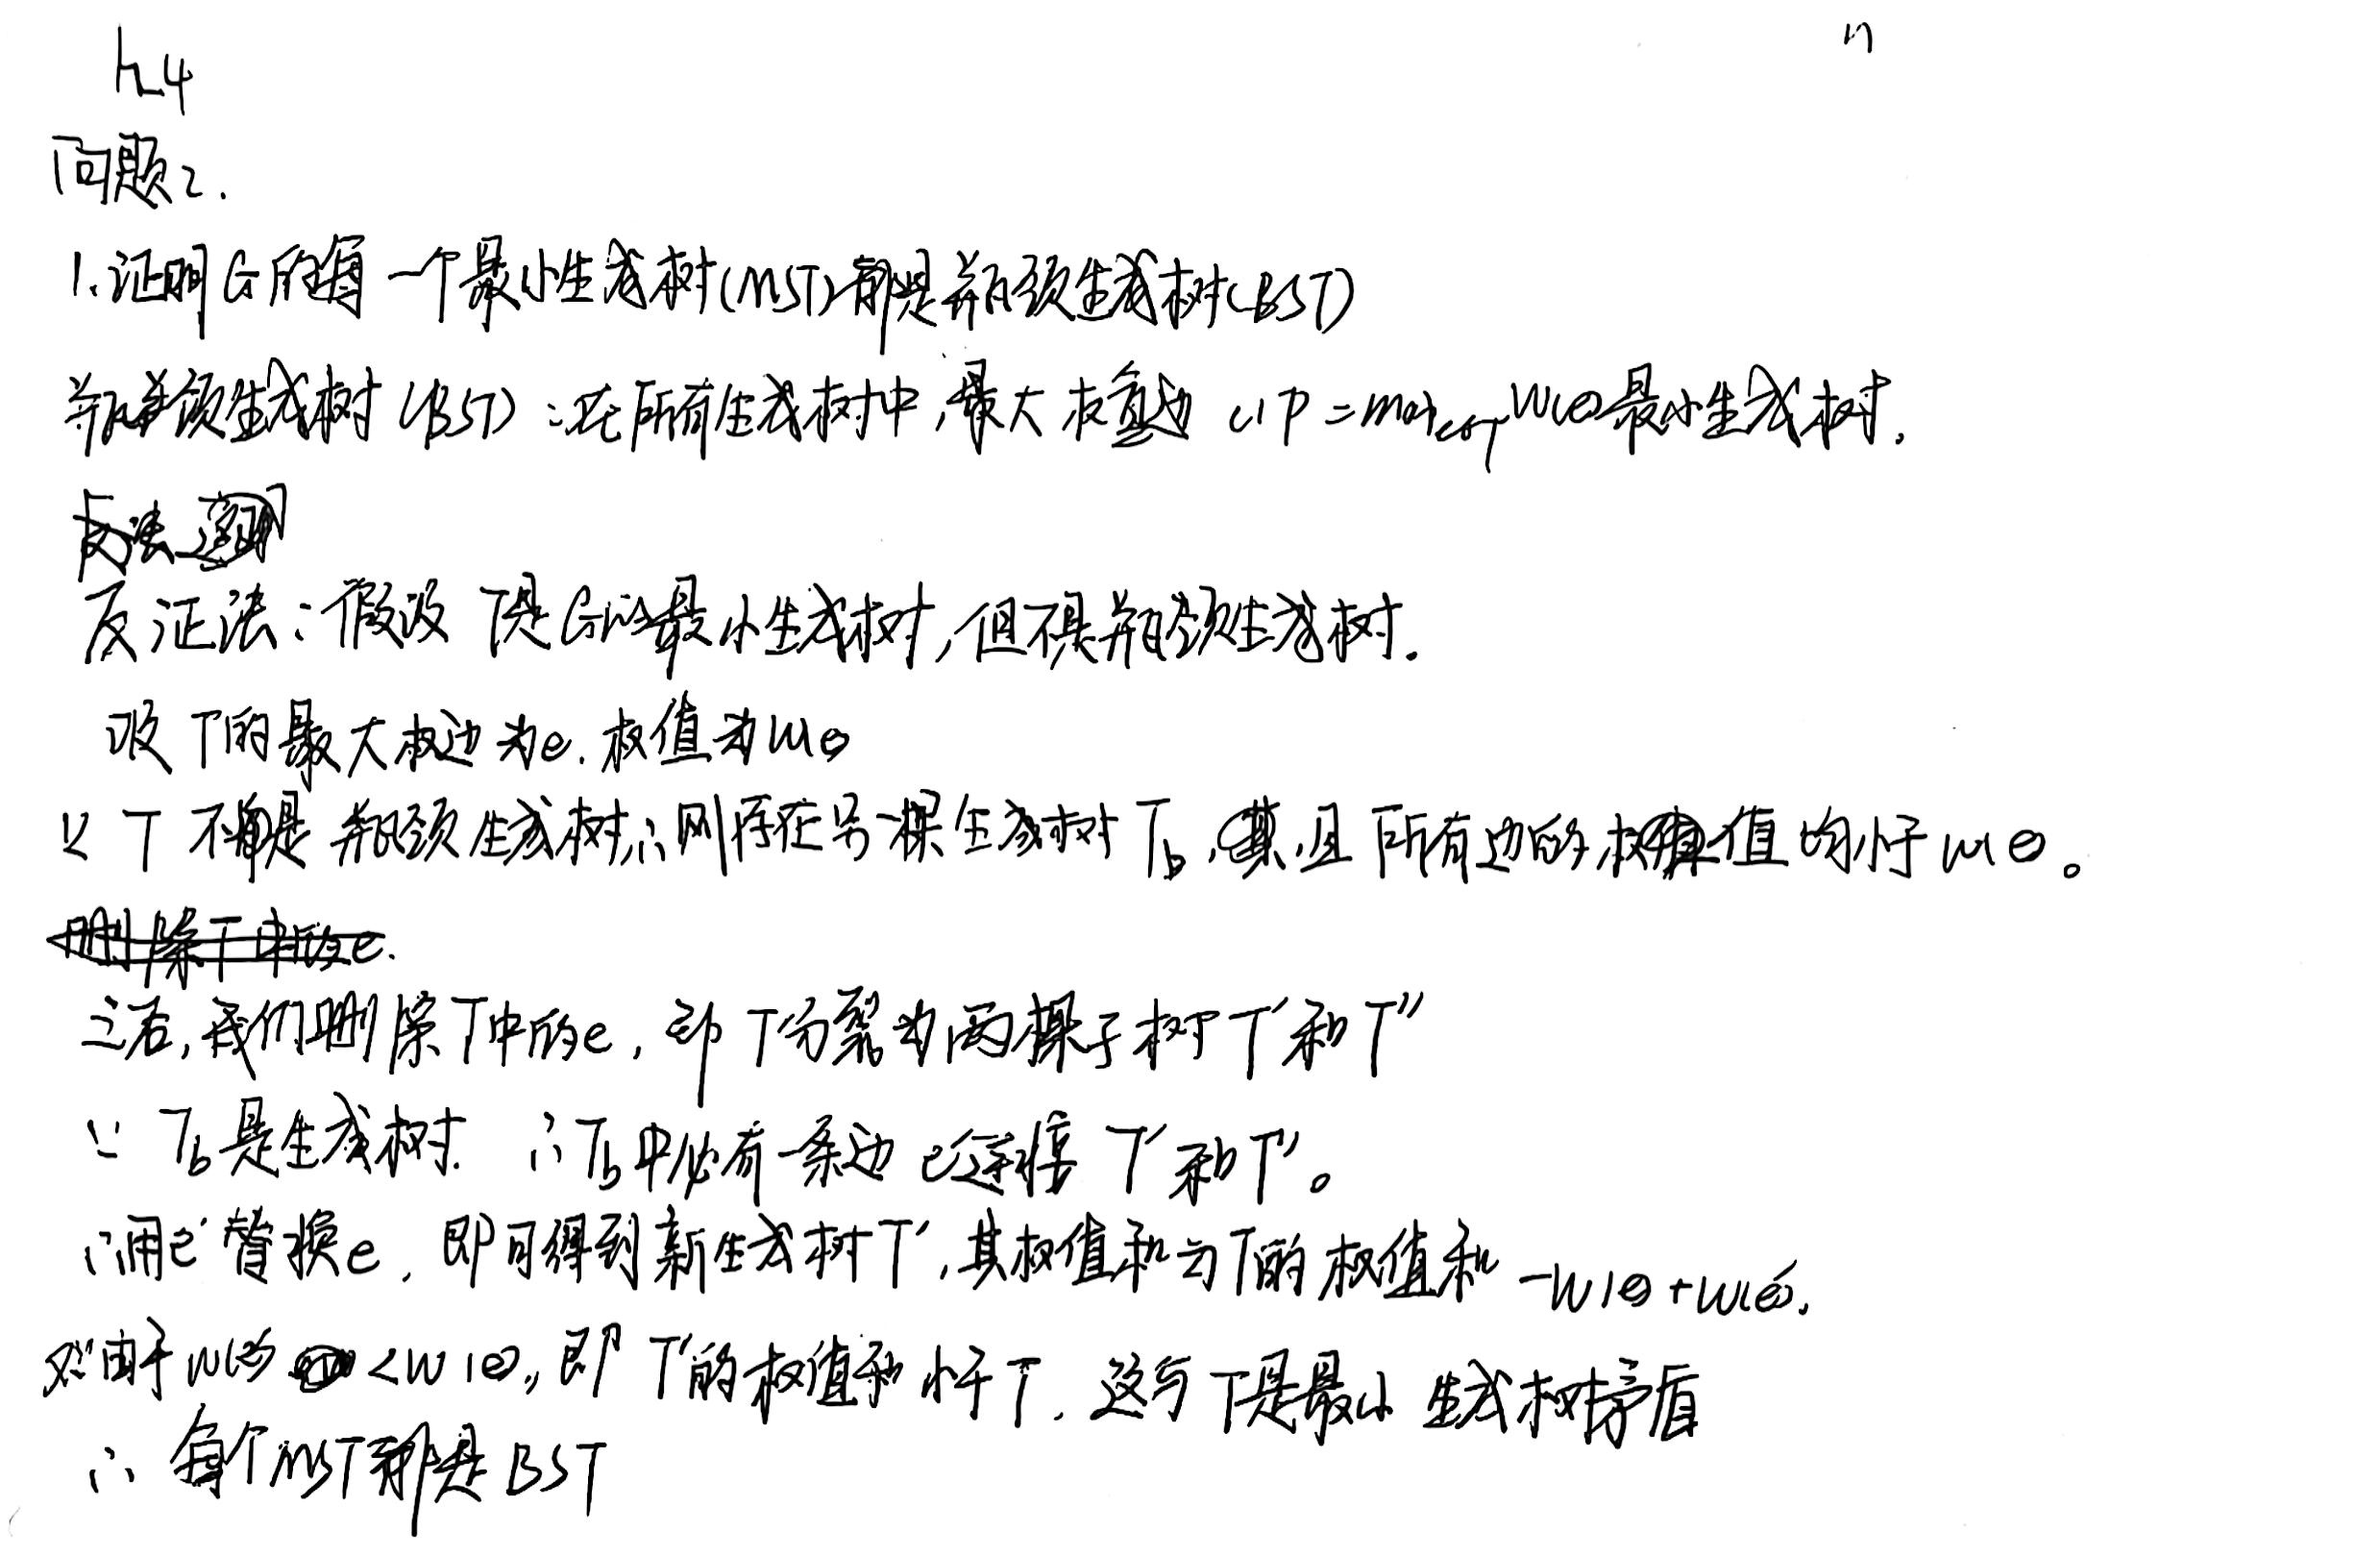 h4
问题2.
1.证明G的每一个最小生成树(MST)都是瓶颈生成树(BST)
瓶颈生成树(BST):在所有生成树中,最大权重边 最小生成树.
反证法:假设T是G的最小生成树,但不是瓶颈生成树.
设T的最大权边为e.权值为w(e)
∵T不是瓶颈生成树,∴则存在另一棵生成树T_b,且所有边的权值均小于w(e)。
之后,我们删除T中的e,即T分裂为两棵子树T'和T''
∵T_b是生成树.∴T_b中必有一条边e'连接T'和T''。
∴用e'替换e,即可得到新生成树T',其权值和为T的权值和-w(e)+w(e').
由于w(e')<w(e),即T'的权值和小于T.这与T是最小生成树矛盾
∴每个MST都是BST